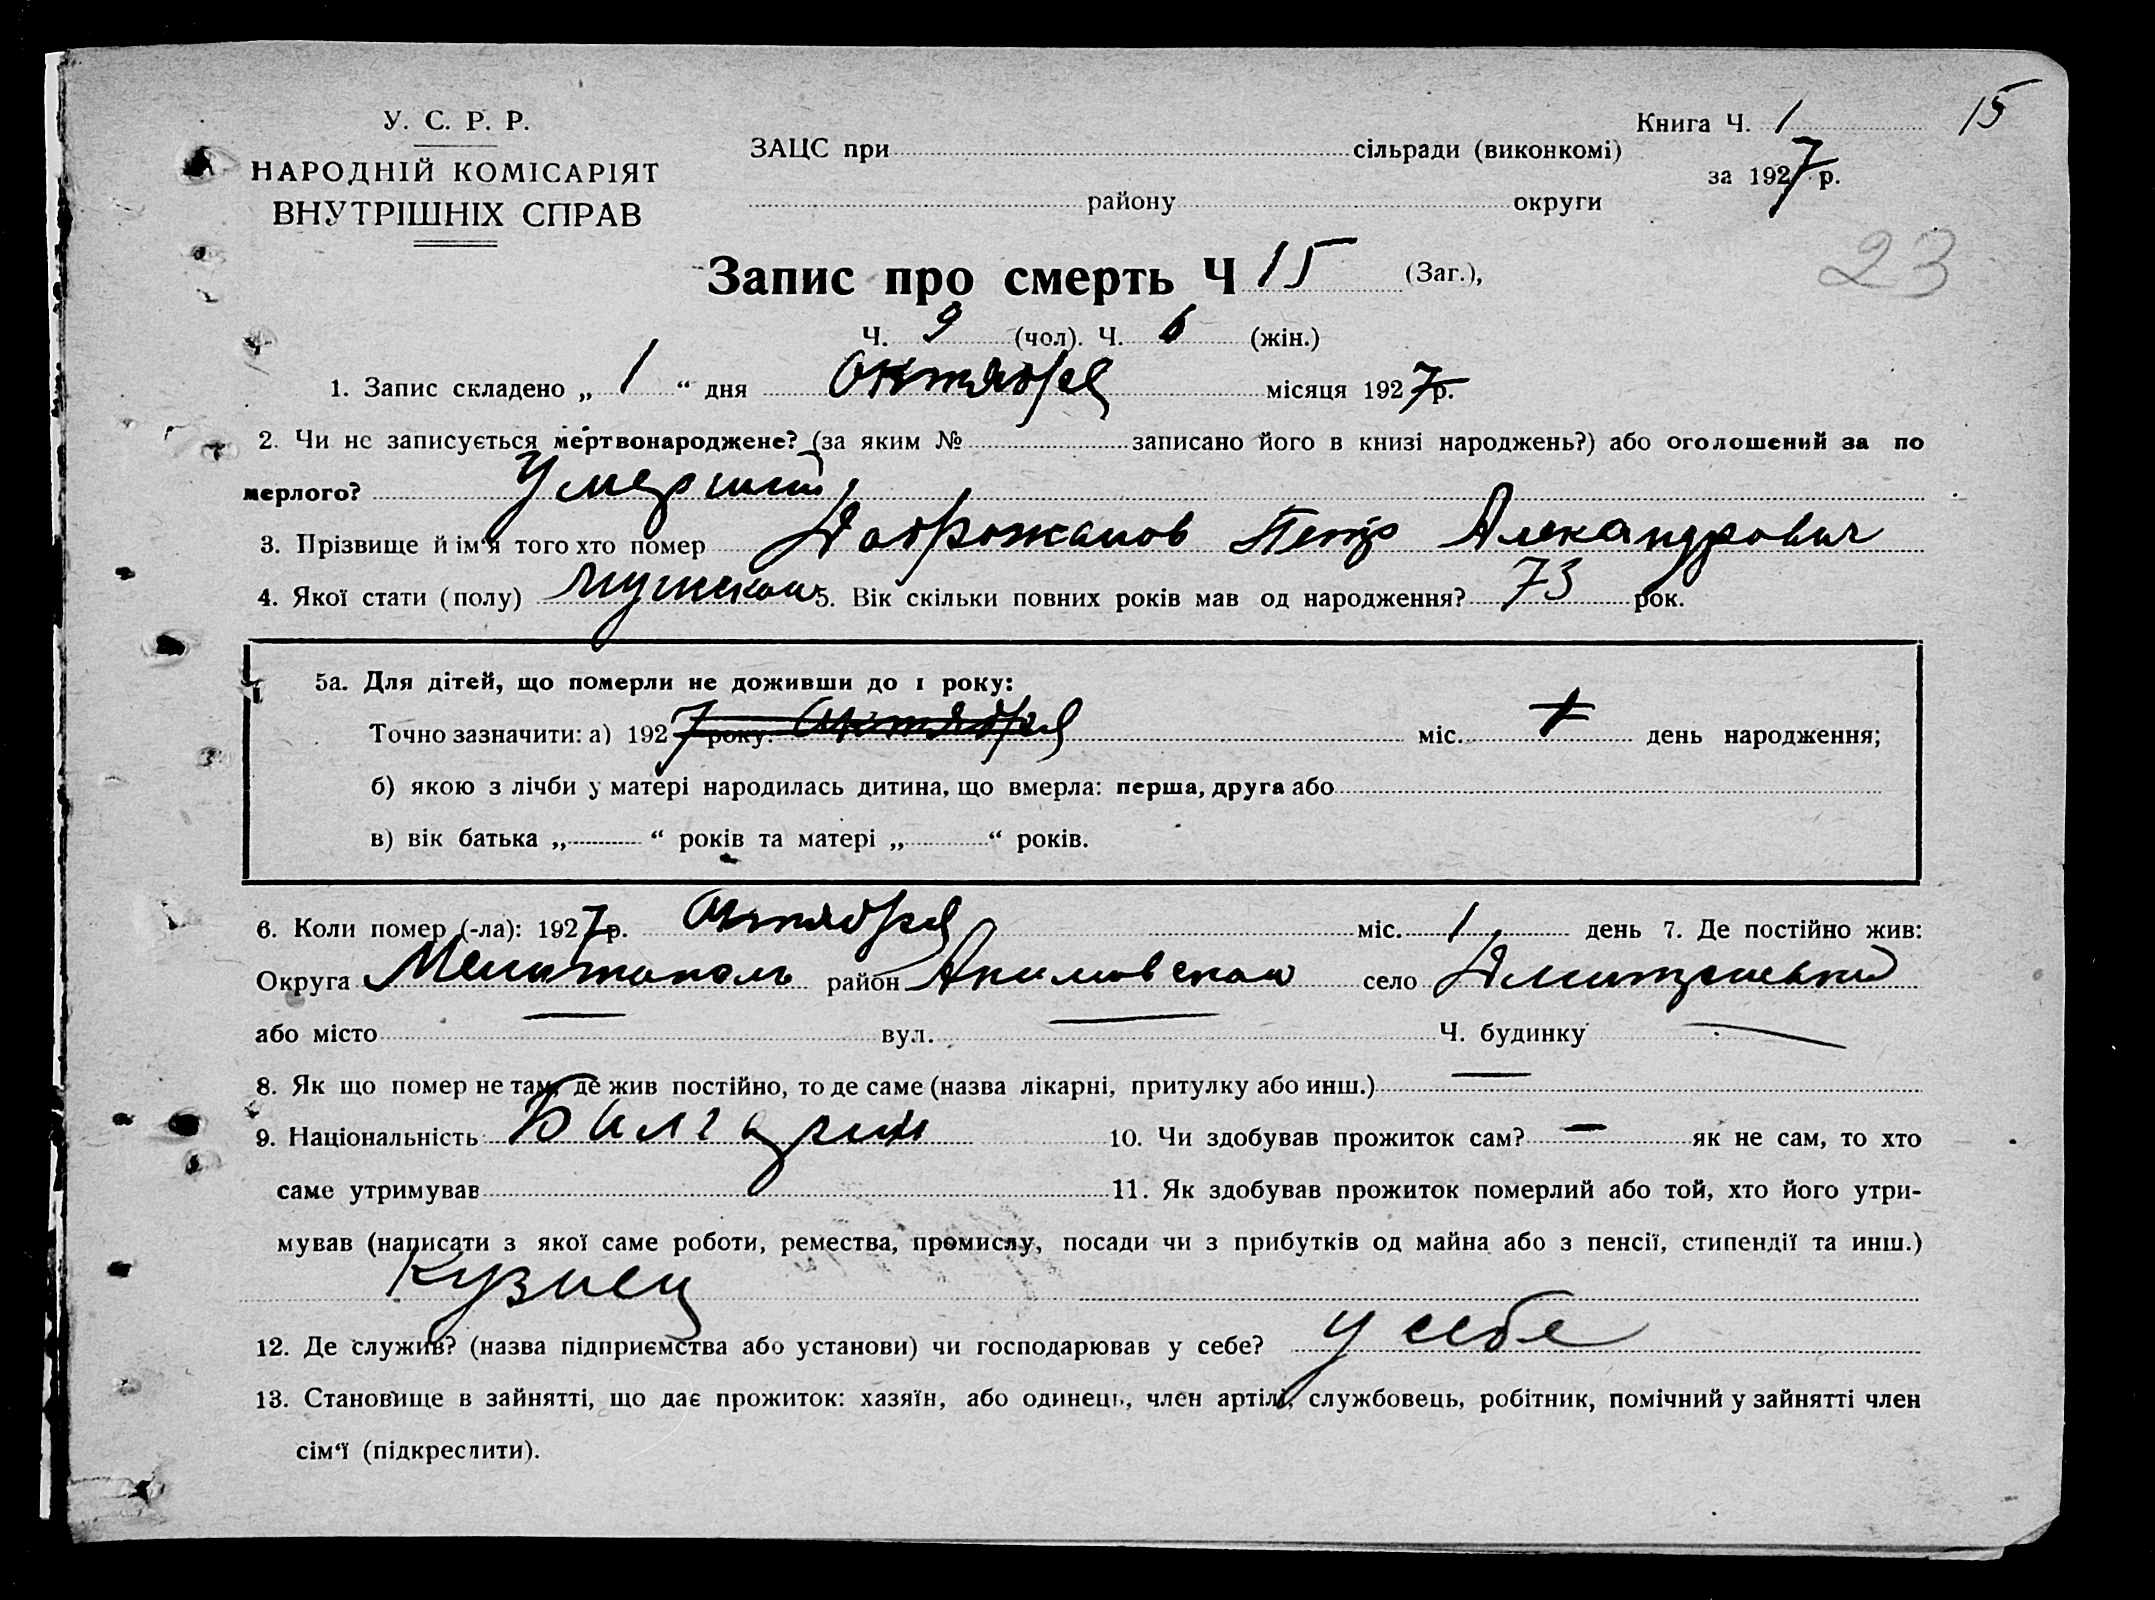 У. С. Р. Р.
НАРОДНІЙ КОМІСАРІЯТ
ВНУТРІШНІХ СПРАВ
ЗАЦС при сільради (виконкомі)
району округи
Книга Ч. 1
за 1927 р.
15
23
Запис про смерть Ч 15 (Заг.),
Ч. 9 (чол). Ч. 6 (жін.)
1. Запис складено „ 1 “ дня Октября місяця 1927 р.
2. Чи не записується мертвонароджене? (за яким № записано його в книзі народжень?) або оголошений за по
мерлого? Умерший
3. Прізвище й ім‘я того хто помер Доброжанов Петр Александрович
4. Якої стати (полу) Мужской 5. Вік скільки повних років мав од народження? 73 рок.
5а. Для дітей, що померли не доживши до 1 року:
Точно зазначити: а) 1927 року. Октября міс. 1 день народження;
б) якою з лічби у матері народилась дитина, що вмерла: перша, друга або
в) вік батька „ “ років та матері „ “ років.
6. Коли помер (-ла): 1927 р. Октября міс. 1 день 7. Де постійно жив:
Округа Мелитополь район Акимовской село
або місто — вул. — Ч. будинку —
8. Як що помер не там, де жив постійно, то де саме (назва лікарні, притулку або инш.) —
9. Національність Балгарин 10. Чи здобував прожиток сам? — як не сам, то хто
саме утримував 11. Як здобував прожиток померлий або той, хто його утри-
мував (написати з якої саме роботи, ремества, промислу, посади чи з прибутків од майна або з пенсії, стипендії та инш.)
Кузнец
12. Де служив? (назва підприємства або установи) чи господарював у себе? у себе
13. Становище в зайнятті, що дає прожиток: хазяїн, або одинець, член артілі, службовець, робітник, помічний у зайнятті член
сім‘ї (підкреслити).